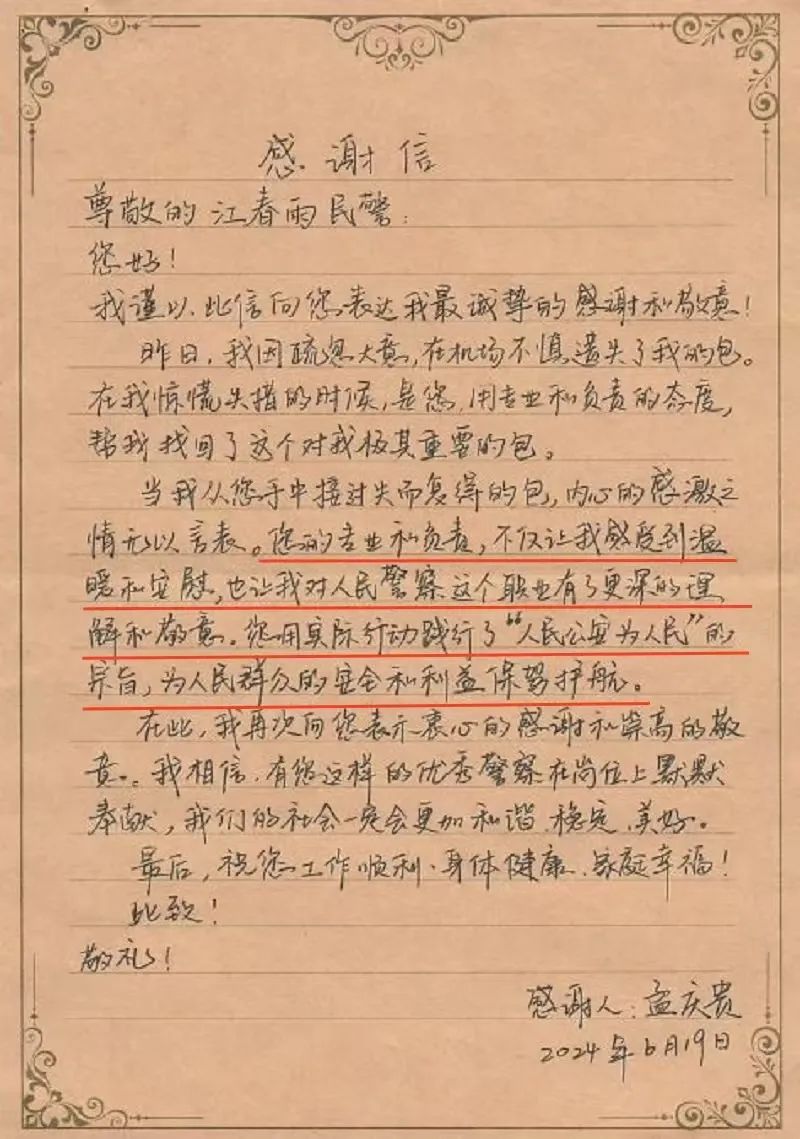 感谢信
尊敬的江春雨民警：
您好！
我谨以此信向您表达我最诚挚的感谢和敬意！
昨日，我因疏忽大意，在机场不慎遗失了我的包。
在我惊慌失措的时候，是您，用专业和负责的态度，
帮我找回了这个对我极其重要的包。
当我从您手中接过失而复得的包，内心的感激之
情无以言表。您的专业和负责，不仅让我感受到温
暖和安慰，也让我对人民警察这个职业有了更深的理
解和敬意。您用实际行动践行了“人民公安为人民”的
宗旨，为人民群众的安全和利益保驾护航。
在此，我再次向您表示衷心的感谢和崇高的敬
意。我相信，有您这样的优秀警察在岗位上默默
奉献，我们的社会一定会更加和谐、稳定、美好。
最后，祝您工作顺利、身体健康、家庭幸福！
此致！
敬礼！
感谢人：孟庆贵
2024年6月19日